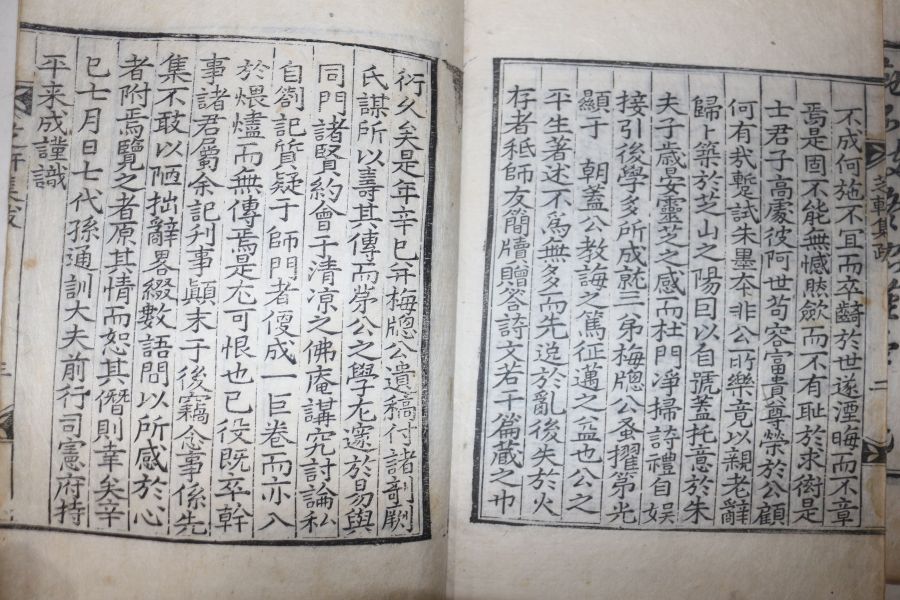 不成何施不宜而卒齟於世遂湮晦而不章
焉是固不能無憾歟歟而不有耻於求衒是
士君子高處彼阿世苟容富貴尊榮於公顧
何有哉蹔試朱墨夲非公所樂竟以親老辭
歸卜築於芝山之陽因以自號蓋托意於朱
夫子歲晏靈芝之感而杜門淨掃詩禮自娱
接引後學多所成就三弟梅牕公蚤擢第光
顯于 朝蓋公敎誨之篤征邁之益也公之
平生著述不爲無多而先逸於亂後失於火
存者秪師友簡牘贈答詩文若干篇藏之巾
衍久矣是年辛巳幷梅牕公遺稿付諸剞劂
氏謀所以壽其傳而第公之學尤邃於易與
同門諸賢約會于清凉之佛庵講究討論私
自劄記質疑于師門者優成一巨卷而亦入
於煨燼而無傳焉是尤可恨也已役既卒幹
事諸君屬余記刋事顚末于後竊念事係先
集不敢以陋拙辭畧綴數語間以所感於心
者附焉覽之者原其情而恕其僭則幸矣辛
巳七月日七代孫通訓大夫前行司憲府持
平来成謹識
二
三